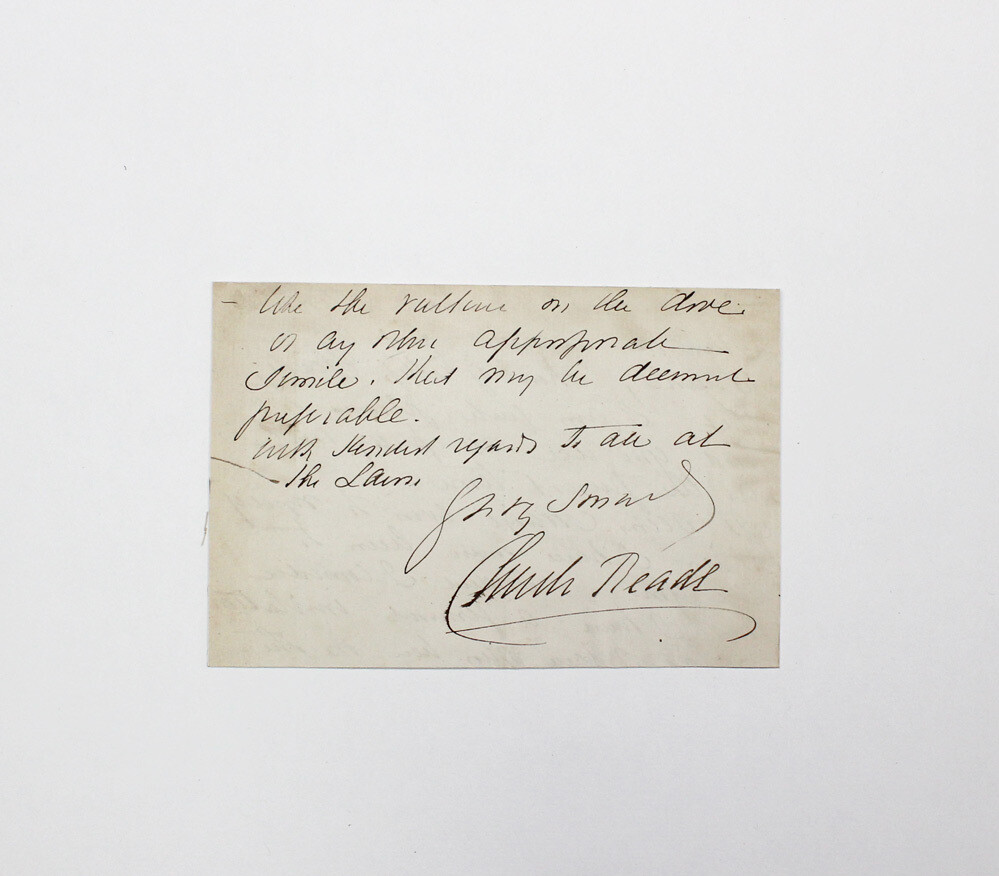 – like the vulture on the dove
or any other appropriate
simile. that may be deemed
preferable.
With kindest regards to all at
the Lawn
Yrs very sincerely
Charles Reade